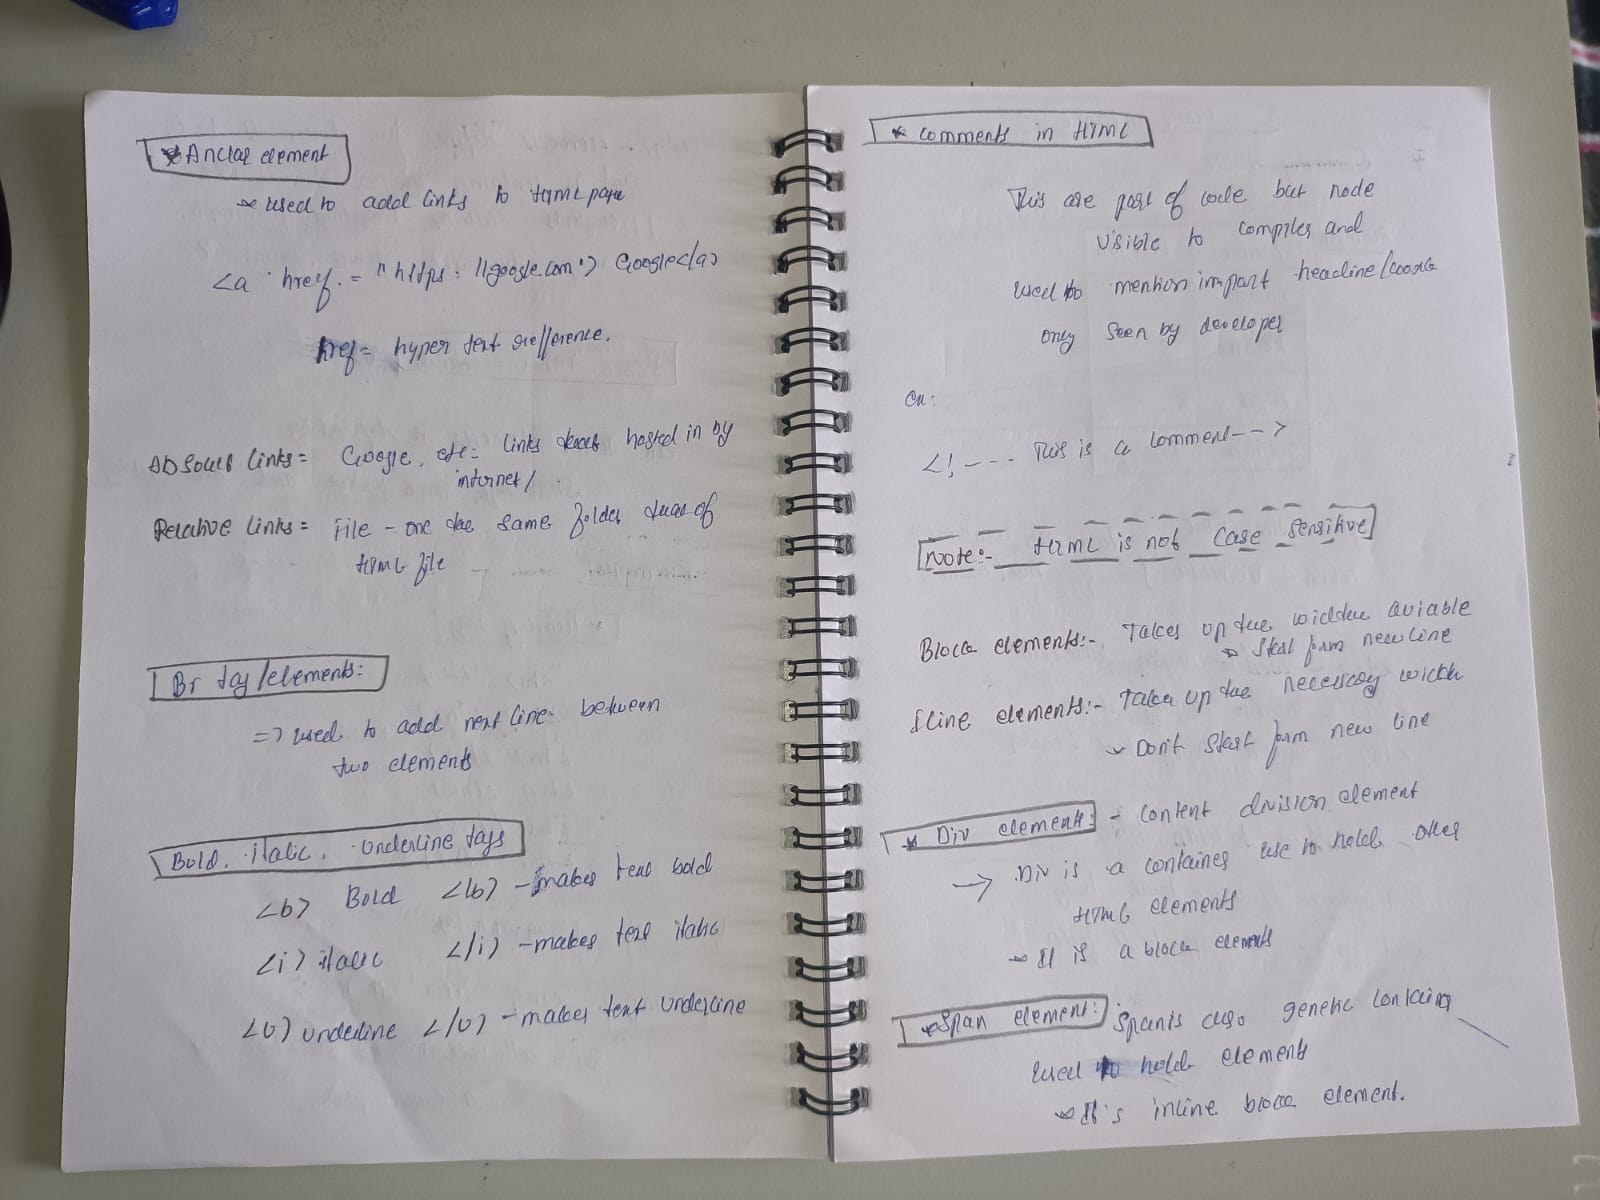 * Anchor element
* used to add links to HTML page
<a href = "https://google.com"> Google</a>
href = hyper text refference.
Absolute links = Google, etc = links that hosted in by
internet/
Relative links = File - one the same folder that of
HTML file
Br tag/elements:
=> used to add next line between
two elements
Bold, italic, Underline tags
<b> Bold </b> - makes text bold
<i> italic </i> - makes text italic
<U> underline </U> - makes text underline
* Comments in HTML
This are part of code but node
visible to compiler and
used to mention impart headline/
only seen by developer
Ex:
<!--- This is a comment-->
Note:- HTML is not case sensitive
Block elements:- Takes up the width aviable
Start from new line
Iline elements:- Takes up the necessary width
Don't start from new line
* Div elements: - Content division element
→ Div is a container use to hold other
HTML elements
It is a block elements
* Span element: Span is also generic containing
used to hold element
It's inline block element.